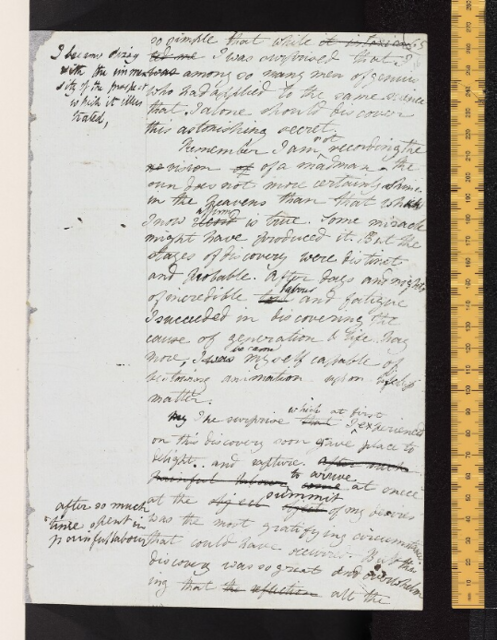 so simple that while
I was surprised that I
among so many men of genius
who had applied to the same science
that I alone should discover
this astonishing secret.
I became dizzy
with the immen
sity of the prospect
which it illus
trated,
Remember I am not recording the
vision of of a madman - the
sun does not more certainly shine
in the heavens than that which
I now affirm is true. Some miracle
might have produced it. But the
stages of discovery were distinct
and probable. After days and nights
of incredible labour and fatigue
I succeeded in discovering the
cause of generation & life. Nay
more, I was became myself capable of
bestowing animation upon lifeless
matter.
My The surprise that which at first I experienced
on this discovery soon gave place to
delight.. and rapture. after much
painful labour to arrive at once
at the object summit of my desires
was the most gratifying circumstance
that could have occurred. But this
discovery was so great and overwhelm
ing that the reflection all the
after so much
time spent in
painful labour